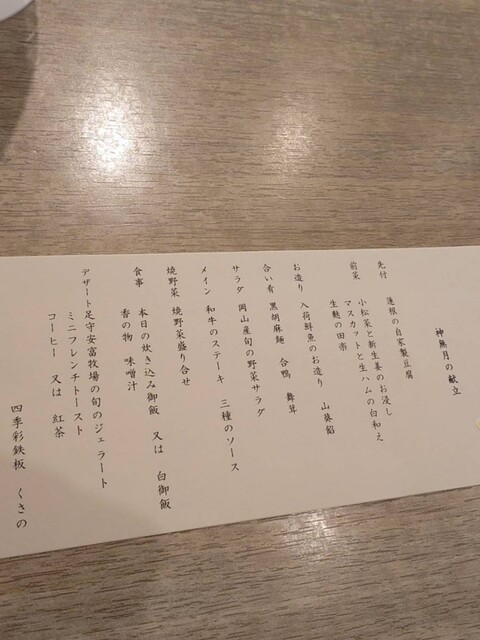 神無月の献立
先付 蓮根の自家製豆腐
前菜 小松菜と新生姜のお浸し
マスカットと生ハムの白和え
生麩の田楽
お造り 入荷鮮魚のお造り 山葵餡
合い肴 黒胡麻麺 合鴨 舞茸
サラダ 岡山産旬の野菜サラダ
メイン 和牛のステーキ 三種のソース
焼野菜 焼野菜盛り合せ
食事 本日の炊き込み御飯 又は 白御飯
香の物 味噌汁
デザート 足守安富牧場の旬のジェラート
ミニフレンチトースト
コーヒー 又は 紅茶
四季彩鉄板 くさの